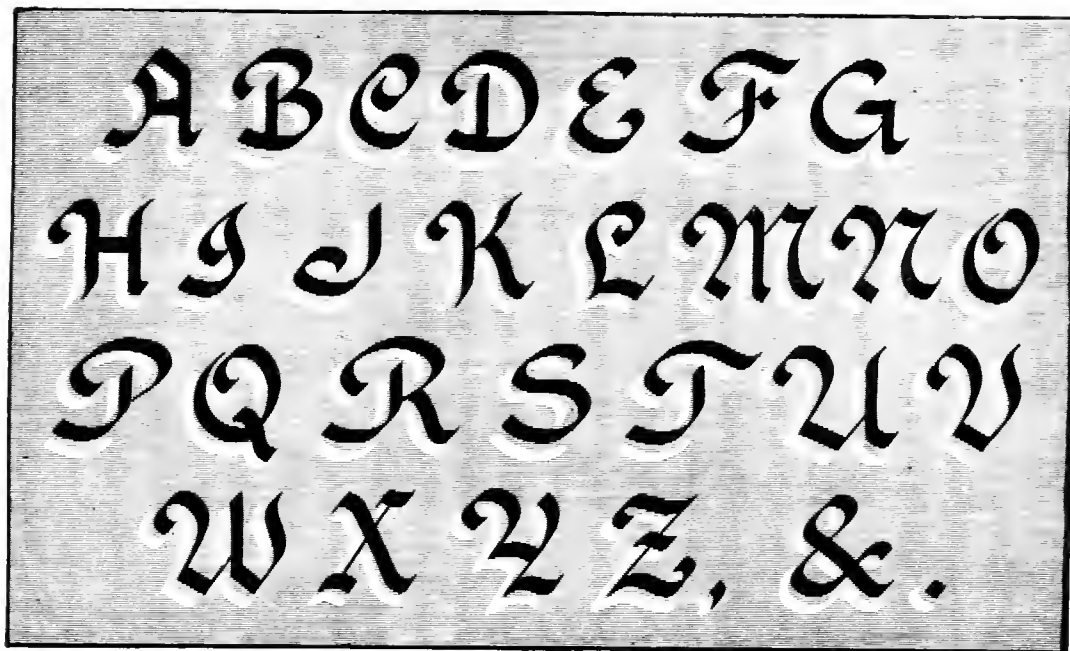 A B C D E F G
H I J K L M N O
P Q R S T U V
W X Y Z , & .